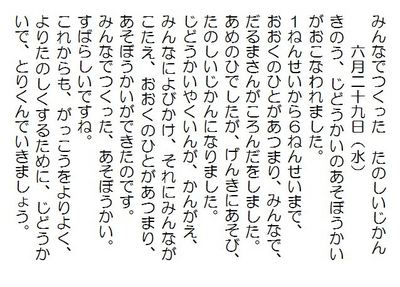 みんなでつくった　たのしいじかん
六月二十九日（水）
きのう、じどうかいのあそぼうかい
がおこなわれました。
１ねんせいから６ねんせいまで、
おおくのひとがあつまり、みんなで、
だるまさんがころんだをしました。
あめのひでしたが、げんきにあそび、
たのしいじかんになりました。
じどうかいやくいんが、かんがえ、
みんなによびかけ、それにみんなが
こたえ、おおくのひとがあつまり、
あそぼうかいができたのです。
みんなでつくった、あそぼうかい。
すばらしいですね。
これからも、がっこうをよりよく、
よりたのしくするために、じどうか
いで、とりくんでいきましょう。